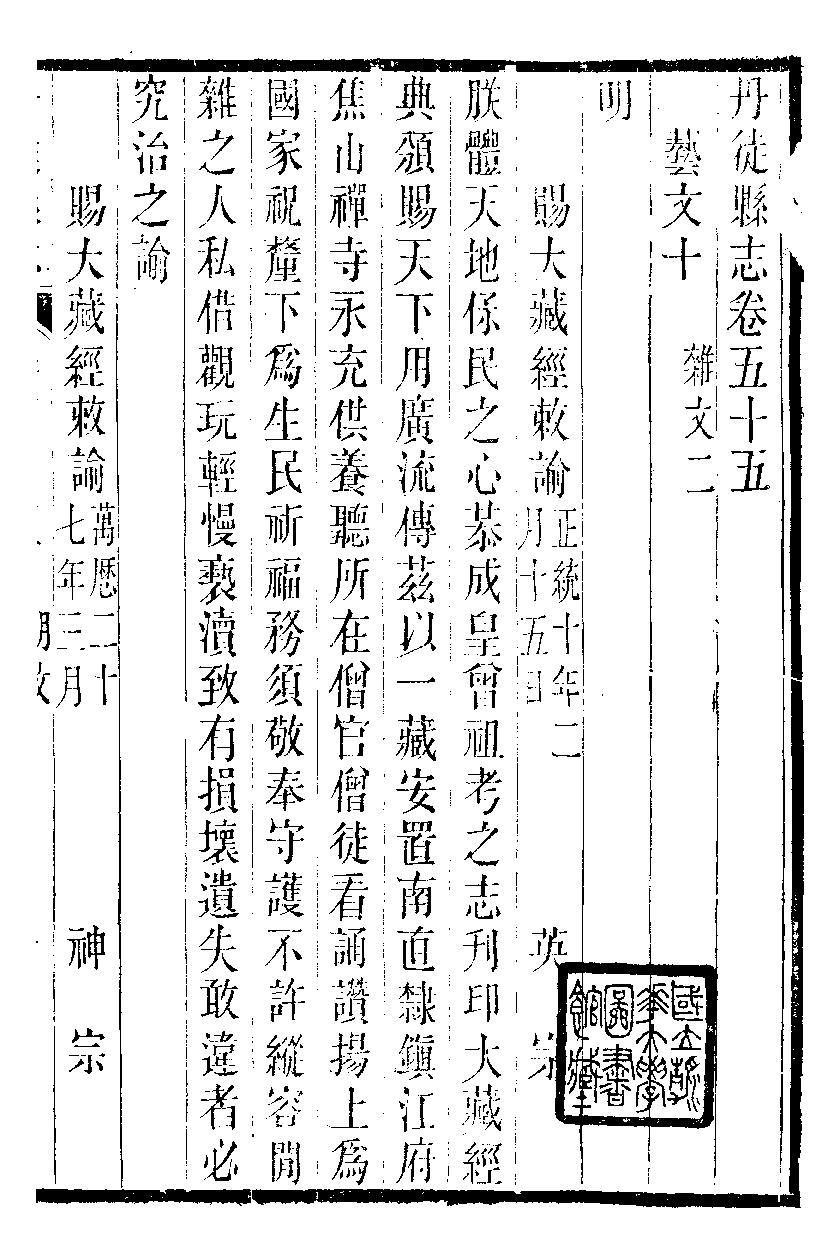 丹徒縣志卷五十五
藝文十　雜文二
明
賜大藏經敕諭正統十年二月十五日　英宗
朕體天地保民之心恭成皇曾祖考之志刋印大藏經
典頒賜天下用廣流傳茲以一藏安置南直隸鎭江府
焦山禪寺永充供養聽所在僧官僧徒看誦讚揚上爲
國家祝釐下爲生民祈福務須敬奉守護不許縱容閒
雜之人私借觀玩輕慢褻瀆致有損壞遺失敢違者必
究治之諭
賜大藏經敕諭萬厯二十七年三月　神宗
國立
大學
圖書
館藏